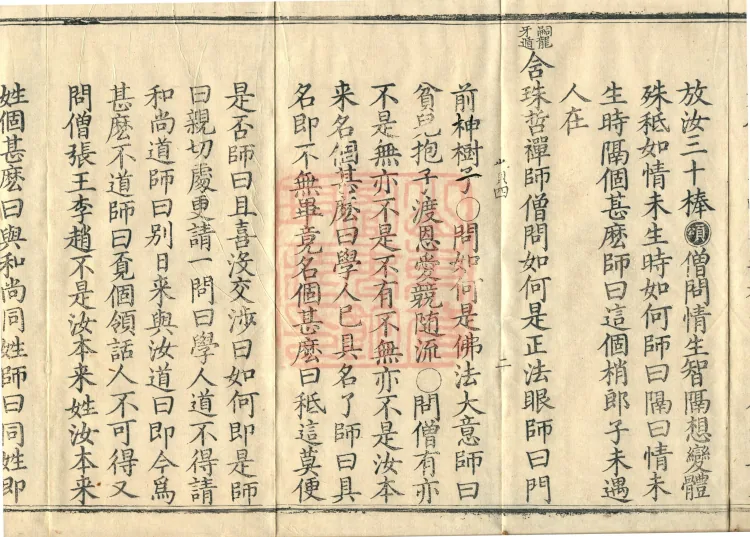 放汝三十棒須僧問情生智隔想變體
殊秪如情未生時如何師曰隔曰情未
生時隔個甚麽師曰這個梢郎子未遇
人在
嗣龍牙遁
含珠哲禪師僧問如何是正法眼師曰門
前神樹子○問如何是佛法大意師曰
貧兒抱子渡恩愛競随流○問僧有亦
不是無亦不是不有不無亦不是汝本
来名個甚麽曰學人已具名了師曰具
名即不無畢竟名個甚麽曰秪這莫便
是否師曰且喜沒交涉曰如何即是師
曰親切處更請一問曰學人道不得請
和尚道師曰别日来與汝道曰即今爲
甚麽不道師曰覔個領話人不可得又
問僧張王李趙不是汝本来姓汝本来
姓個甚麽曰與和尚同姓師曰同姓即
二